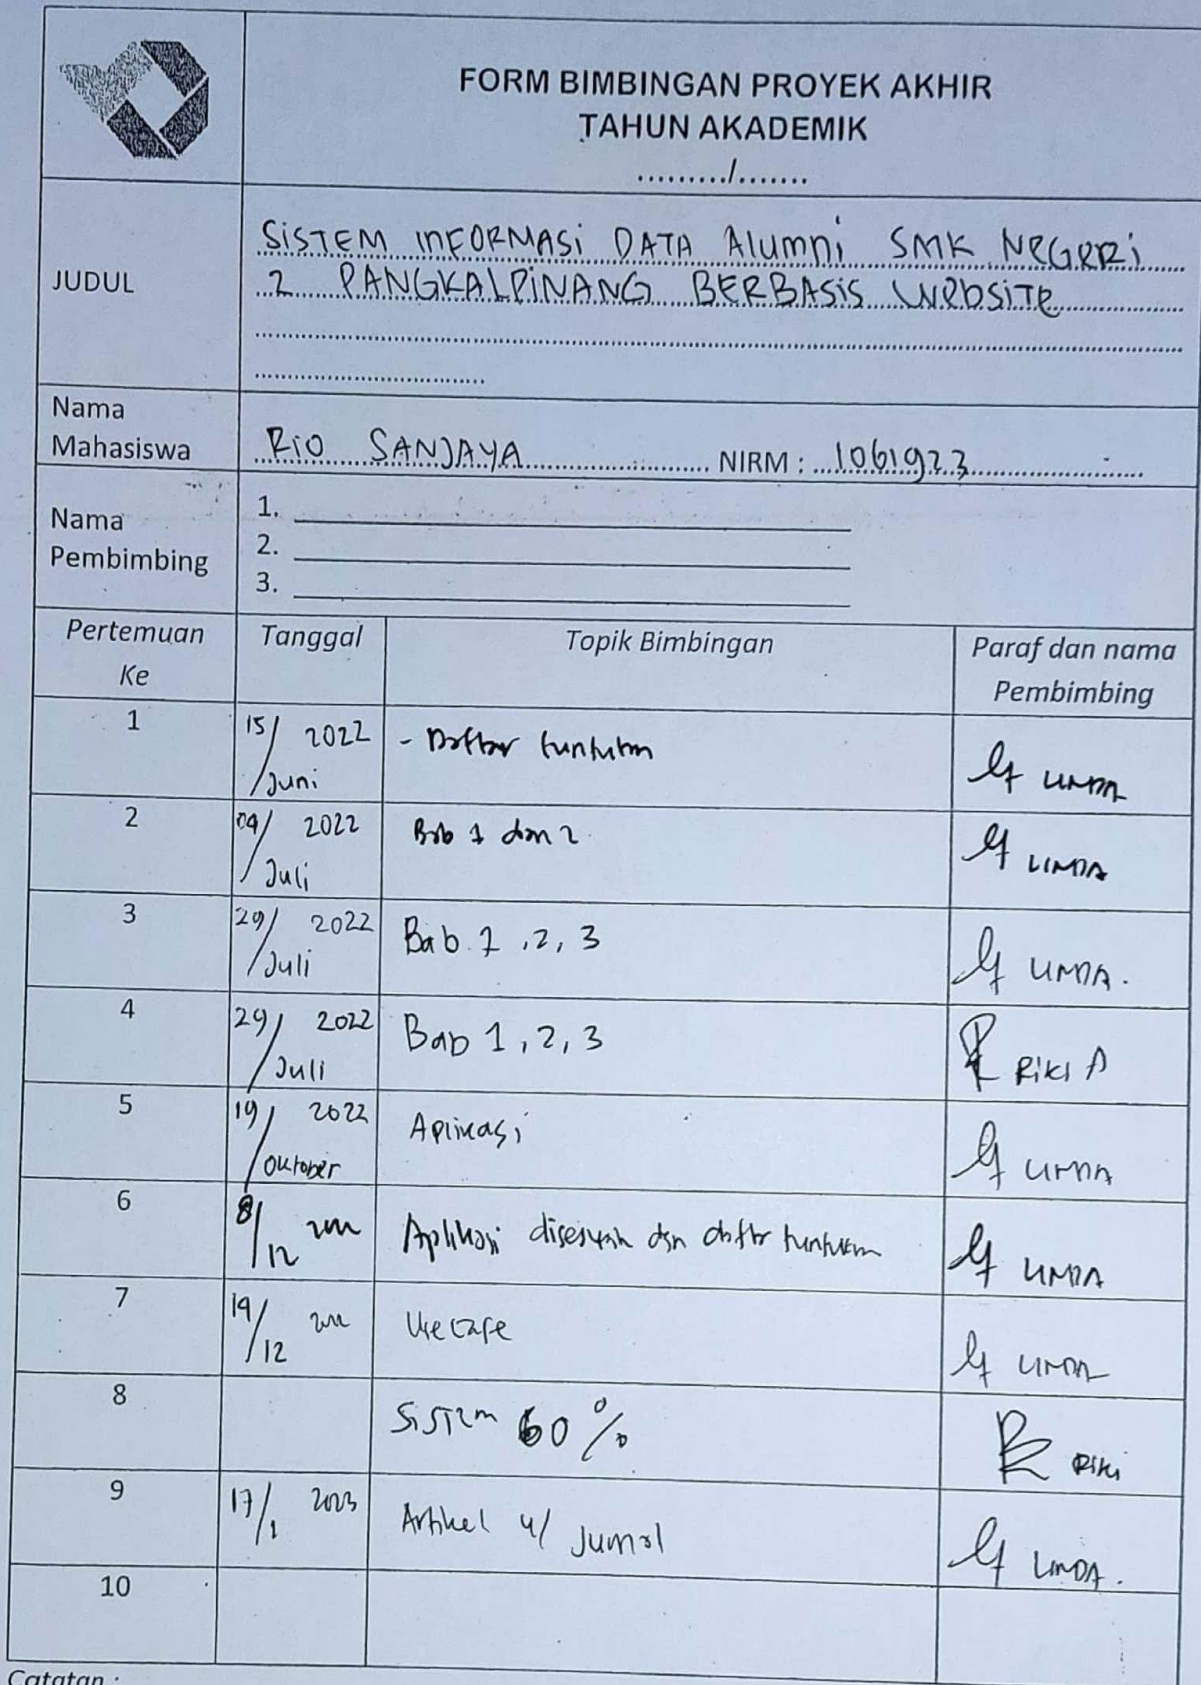 FORM BIMBINGAN PROYEK AKHIR
TAHUN AKADEMIK
........./.......
JUDUL
SISTEM INFORMASI DATA Alumni SMK NEGERI
2 PANGKALPINANG BERBASIS WEBSITE
Nama
Mahasiswa
RIO SANJAYA NIRM : 1061923
Nama
Pembimbing
1.
2.
3.
Pertemuan
Ke
Tanggal
Topik Bimbingan
Paraf dan nama
Pembimbing
1
15/ 2022
/Juni
- Daftar tuntutan
LINDA
2
04/ 2022
/Juli
Bab 1 dan 2.
LINDA
3
29/ 2022
/Juli
Bab 1, 2, 3
LINDA.
4
29/ 2022
/Juli
Bab 1, 2, 3
RIKI A
5
19/ 2022
/Oktober
Aplikasi
LINDA
6
8/12 2022
Aplikasi disesuain dgn daftar tuntutan
LINDA
7
19/12 2022
Use Case
LINDA
8
Sistem 60 %
RIKI
9
17/1 2023
Artikel u/ Jurnal
LINDA.
10
Catatan :